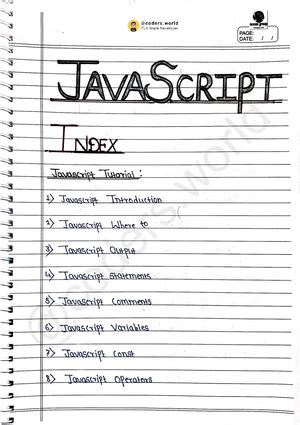 @coders.world
Full Stack Developer
PAGE:
DATE: / /
JAVASCRIPT
INDEX
Javascript Tutorial :
1> Javascript Introduction
2> Javascript Where to
3> Javascript Output
4> Javascript Statements
5> Javascript Comments
6> Javascript Variables
7> Javascript Const
8> Javascript Operators
@coders.world